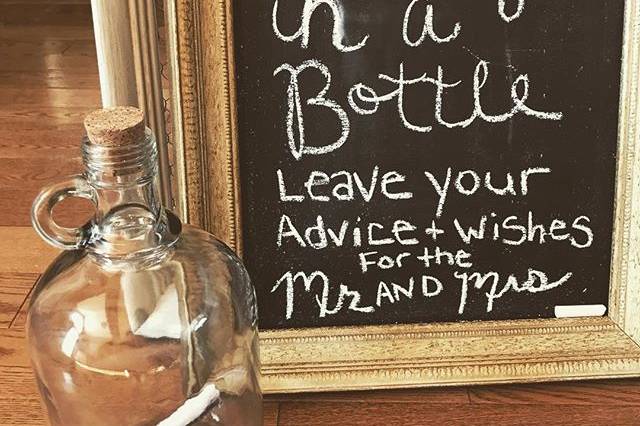 in a
Bottle
Leave your
Advice + wishes
For the
Mr AND Mrs